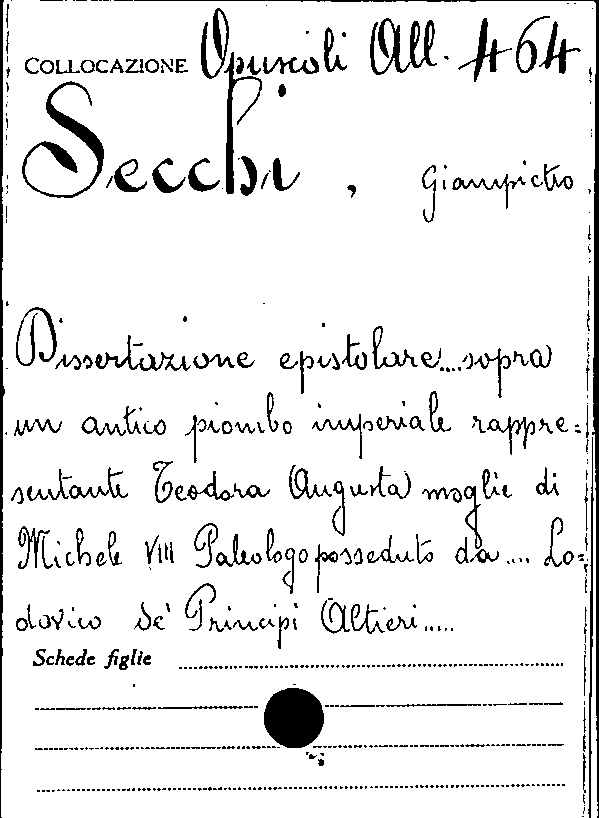 COLLOCAZIONE Opuscoli All. 464
Secchi, Giampietro
Dissertazione epistolare....sopra
un antico piombo imperiale rappre=
sentante Teodora Augusta moglie di
Michele VIII Paleologo posseduto da.... Lo=
dovico de' Principi Altieri.....
Schede figlie